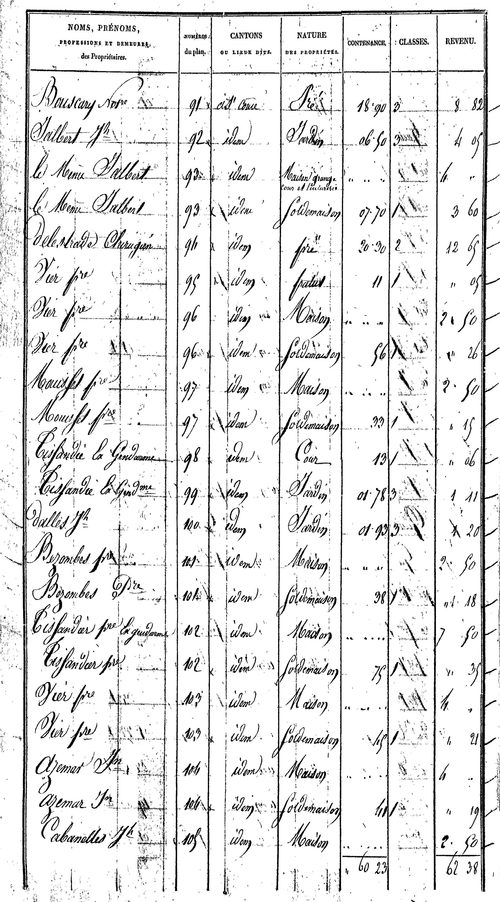 NOMS, PRÉNOMS, PROFESSIONS ET DEMEURES des Propriétaires. NUMÉROS du plan. CANTONS OU LIEUX DITS. NATURE DES PROPRIÉTÉS. CONTENANCE. CLASSES. REVENU.
91 Pré 18.90 3 8 82
Jalbert Jh 92 idem Jardin 06.50 3 4 05
le Meme Jalbert 93 idem Maison grange 6 "
le Meme Jalbert 93 idem Soldemaison 07-70 1 3 60
delestrade Chirugien 94 idem pré 20-30 2 12 65
Vier pre 95 idem patus 11 1 " 05
Vier pre 96 idem Maison 2 50
Vier pre 96 idem Soldemaison 56 1 " 26
Mousset pre 97 idem Maison 2 50
Mousset pre 97 idem Soldemaison 33 1 " 15
Tisfandié la Gendarme 98 idem Cour 13 1 " 06
Tisfandié la Gendme 99 idem Jardin 01-78 3 1 11
dalles Jh 100 idem Jardin 01-93 3 1 20
Bezombes pre 101 idem Maison 2 50
Bezombes pre 101 idem Soldemaison 38 1 " 18
Tisfandier pre la gendarme 102 idem Maison 7 50
Tisfandier pre 102 idem Soldemaison 75 1 " 35
Vier pre 103 idem Maison 4 "
Vier pre 103 idem Soldemaison 45 1 " 21
azemar Jn 104 idem Maison 4
azemar Jn 104 idem Soldemaison 41 1 " 19
Cabanelles Jh 105 idem Maison 2 50
60 23 62 38